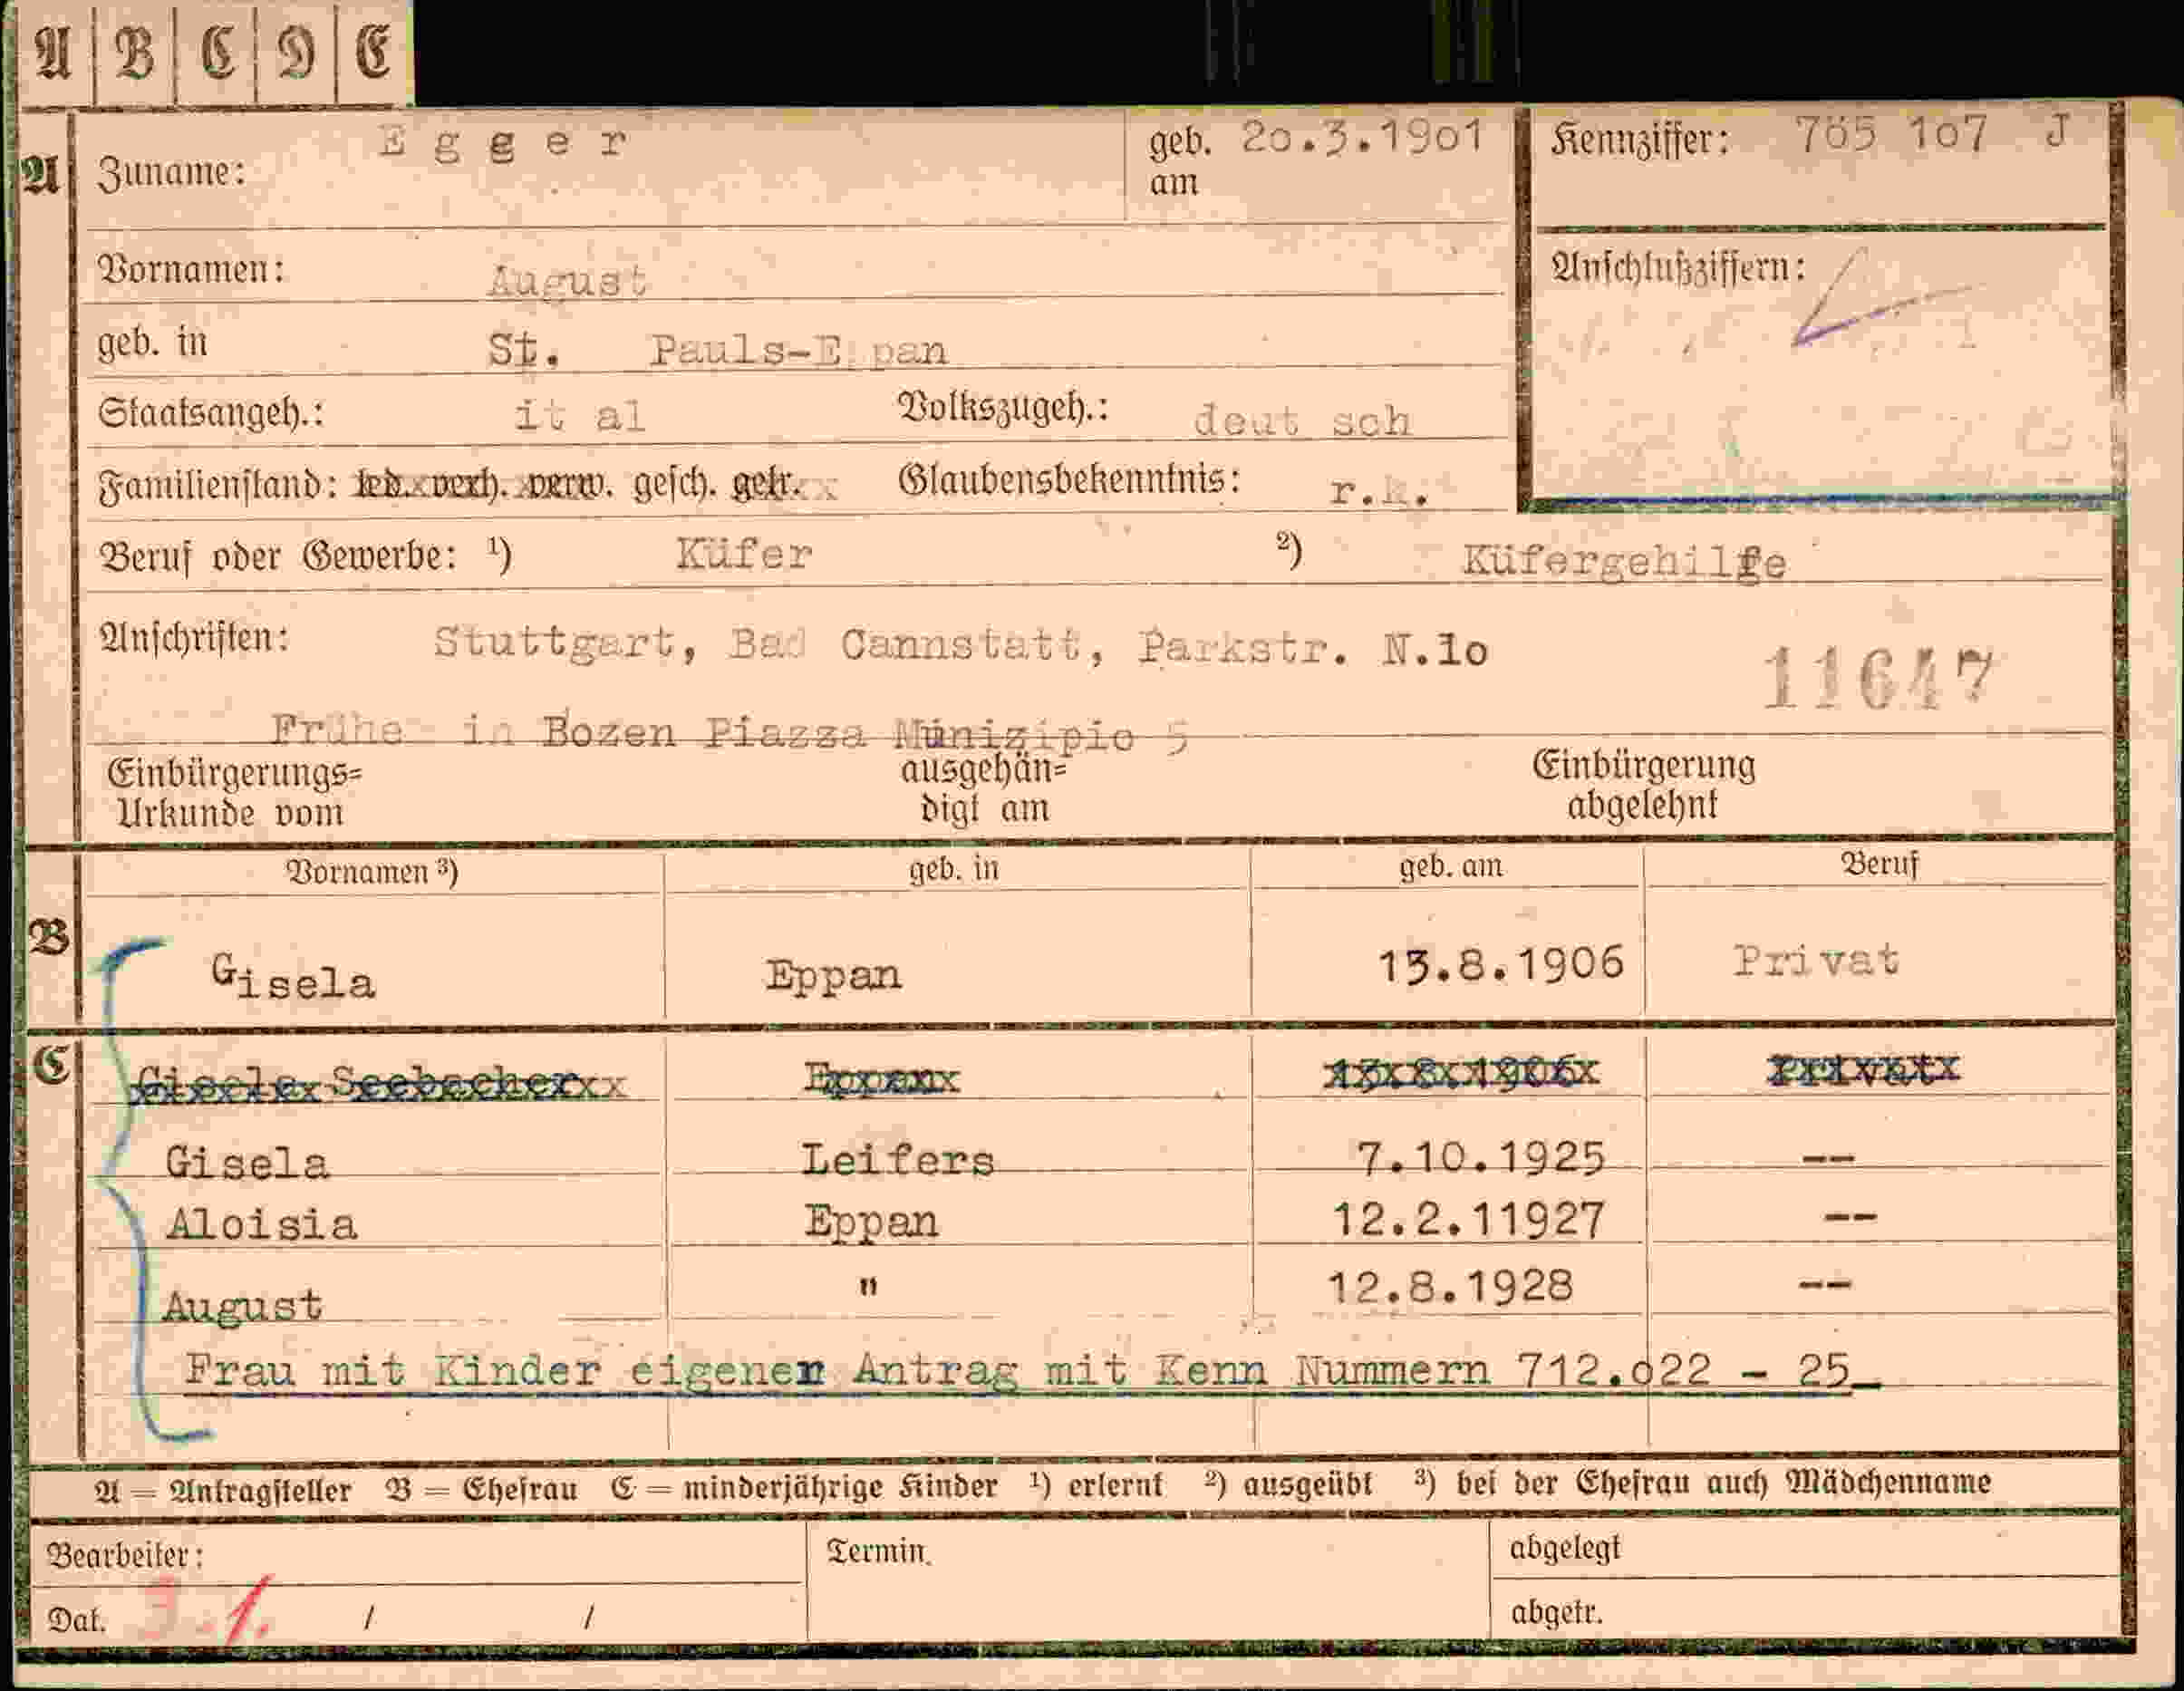 A B C D E
A Zuname: Egger geb. am 20.3.1901 Kennziffer: 107 J
Vornamen: August Anschlußziffern:
geb. in St. Pauls-Eppan
Staatsangeh.: it al Volkszugeh.: deut sch
Familienstand: led. verh. verw. gesch. getr. Glaubensbekenntnis: r.k.
Beruf oder Gewerbe: ¹) Küfer ²) Küfergehilfe
Anschriften: Stuttgart, Bad Cannstatt, Parkstr. N.lo
11647
Früher in Bozen Piazza Munizipio 5
Einbürgerungs=
Urkunde vom
ausgehän=
digt am
Einbürgerung
abgelehnt
Vornamen ³) geb. in geb. am Beruf
B Gisela Eppan 13.8.1906 Privat
C Gisela Seebacher Eppan 13.8.1906 Privat
Gisela Leifers 7.10.1925 --
Aloisia Eppan 12.2.11927 --
August " 12.8.1928 --
Frau mit Kinder eigenen Antrag mit Kenn Nummern 712.o22 - 25
A = Antragsteller B = Ehefrau C = minderjährige Kinder ¹) erlernt ²) ausgeübt ³) bei der Ehefrau auch Mädchenname
Bearbeiter: Termin. abgelegt
Dat. / / abgetr.